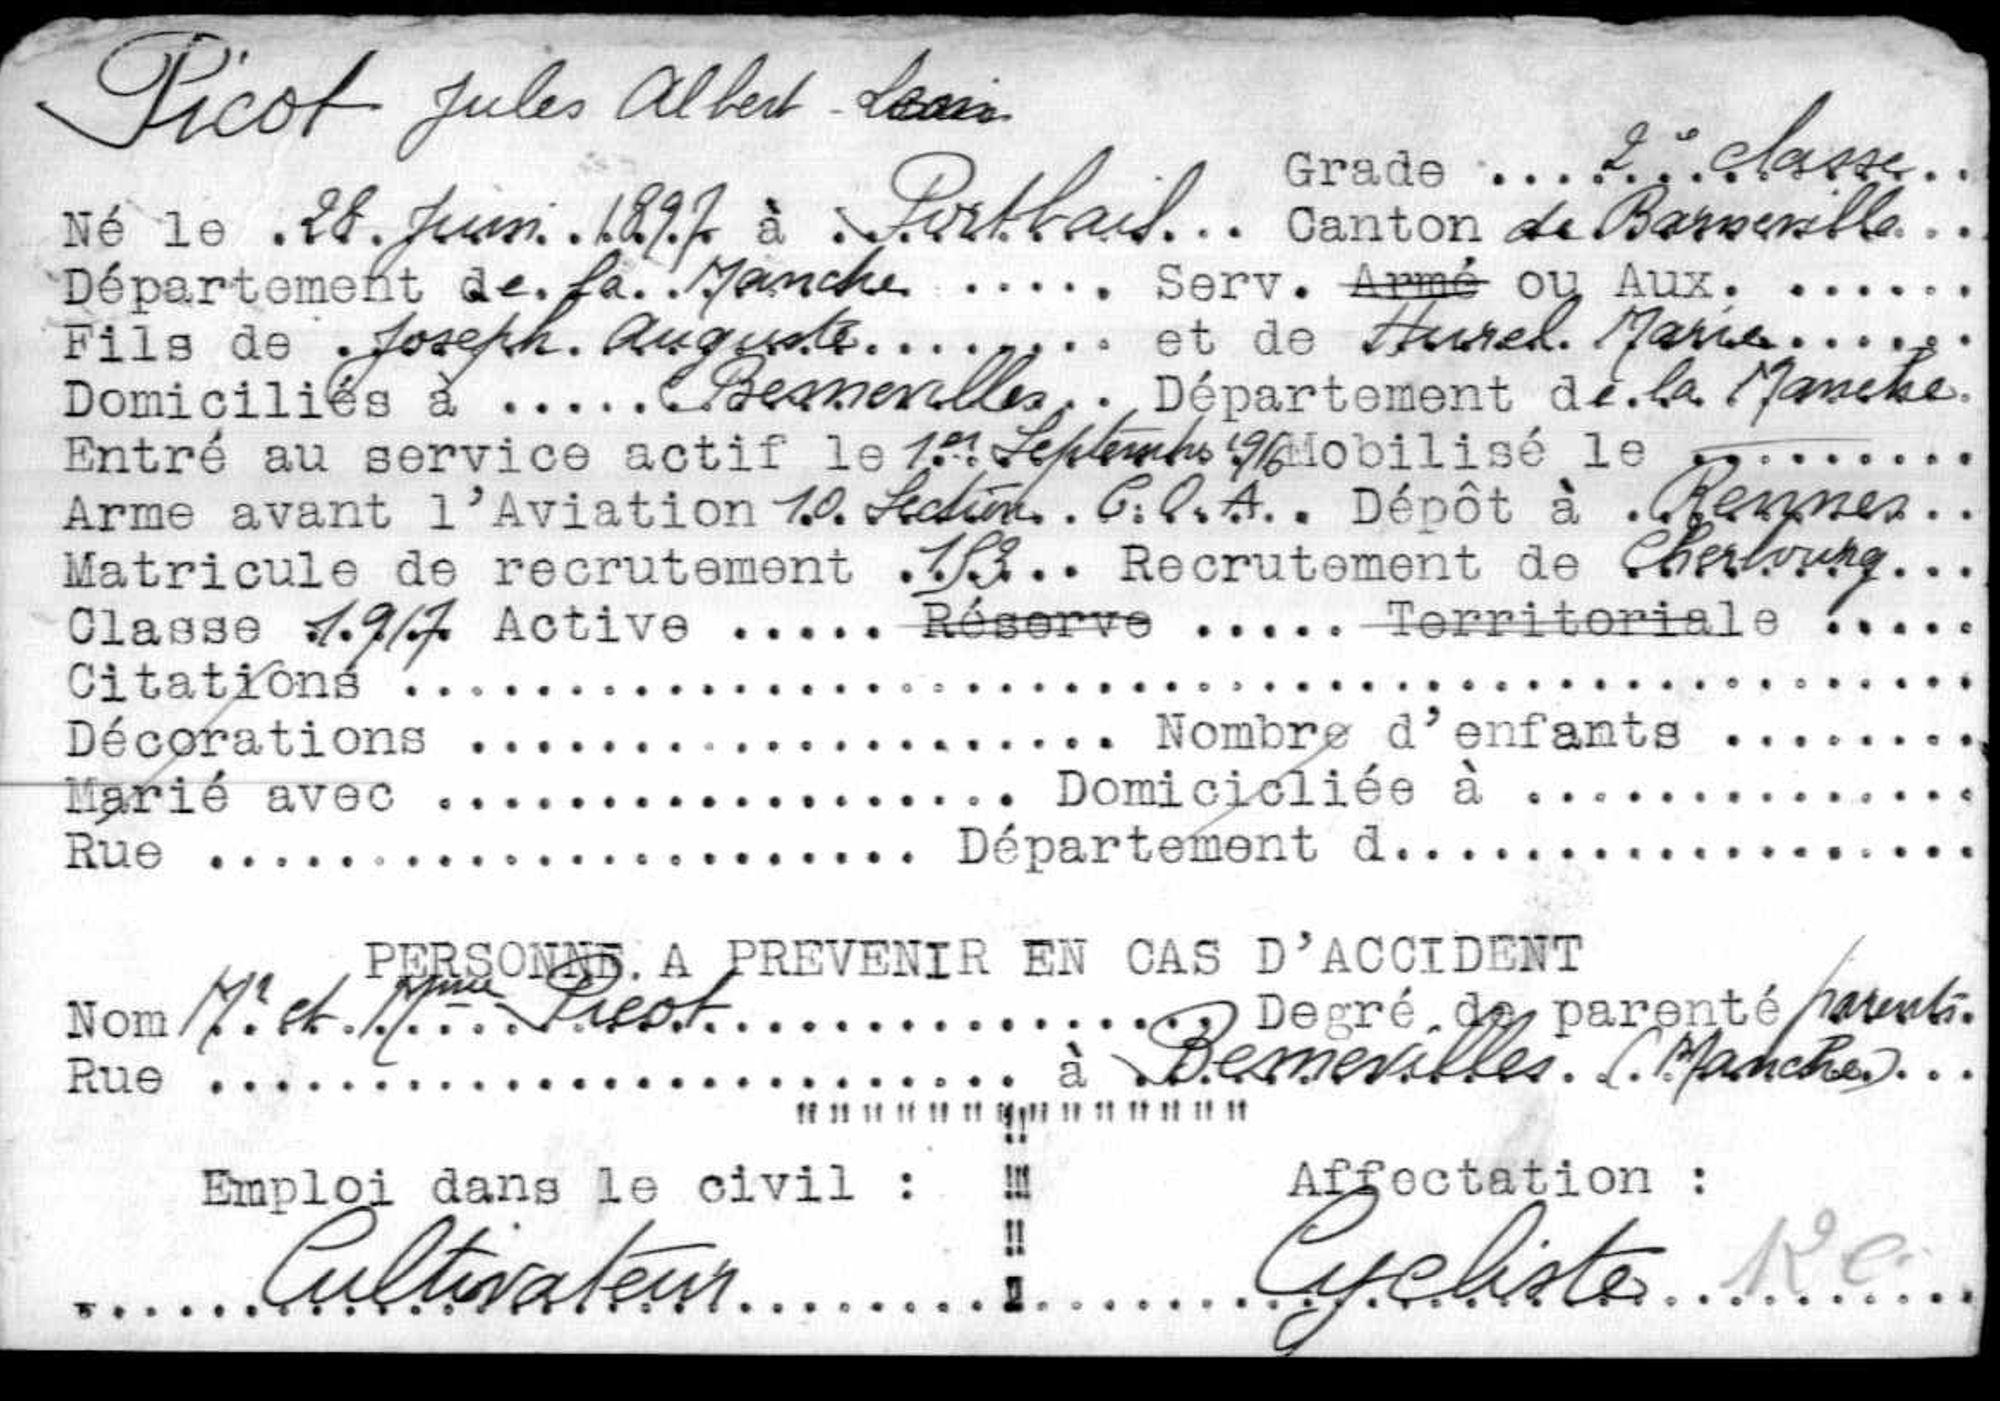 Picot Jules Albert - Louis
Grade .... 2e classe..
Né le .28. Juin. .1897 à .Portbail... Canton de Barneville...
Département de.la. .Manche ..... Serv. Armé ou Aux. ......
Fils de .Joseph. Auguste........ et de Hurel. Marie......
Domiciliés à .....Besnevilles.. Département de.la. Manche.
Entré au service actif le 1er. Septembre 1916 Mobilisé le .........
Arme avant l'Aviation 10. Section. . C.O.A. . Dépôt à .Rennes..
Matricule de recrutement .153... Recrutement de Cherbourg...
Classe 1.917 Active ..... Réserve ..... Territoriale .....
Citations ................................................
Décorations .................... Nombre d'enfants ........
Marié avec .................. Domicicliée à ..............
Rue ...................... Département d..................
PERSONNE A PREVENIR EN CAS D'ACCIDENT
Nom Mr. et. Mme Picot............... Degré de parenté parents.
Rue ......................... à .Besnevilles. (.Manche)...
Emploi dans le civil : Affectation :
.....Cultivateur........ ........Cycliste..........